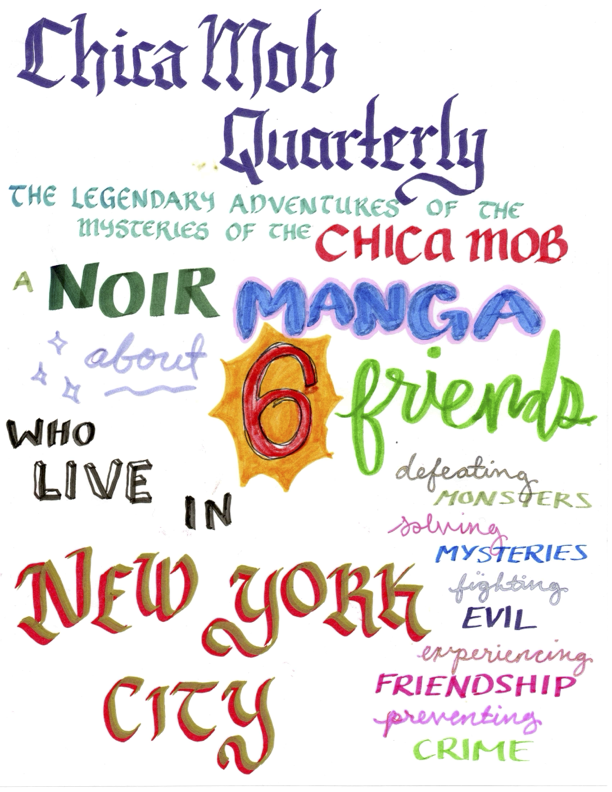 Chica Mob
Quarterly
THE LEGENDARY ADVENTURES OF THE
MYSTERIES OF THE CHICA MOB
A NOIR MANGA
about 6 friends
WHO
LIVE
IN
NEW YORK
CITY
defeating
MONSTERS
solving
MYSTERIES
fighting
EVIL
experiencing
FRIENDSHIP
preventing
CRIME